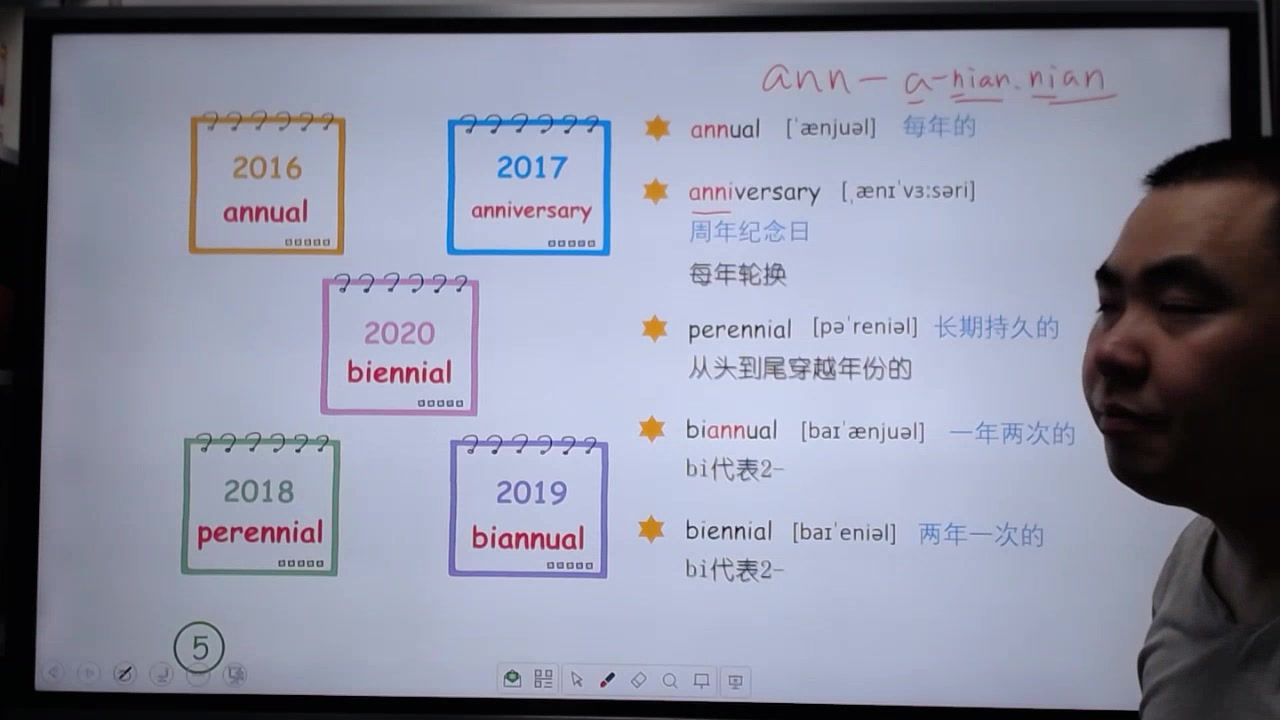 ann- a-nian.nian
2016
annual
2017
anniversary
2020
biennial
2018
perennial
2019
biannual
5
annual [ˈænjuəl] 每年的
anniversary [ˌænɪˈvɜːsəri]
周年纪念日
每年轮换
perennial [pəˈreniəl] 长期持久的
从头到尾穿越年份的
biannual [baɪˈænjuəl] 一年两次的
bi代表2-
biennial [baɪˈeniəl] 两年一次的
bi代表2-